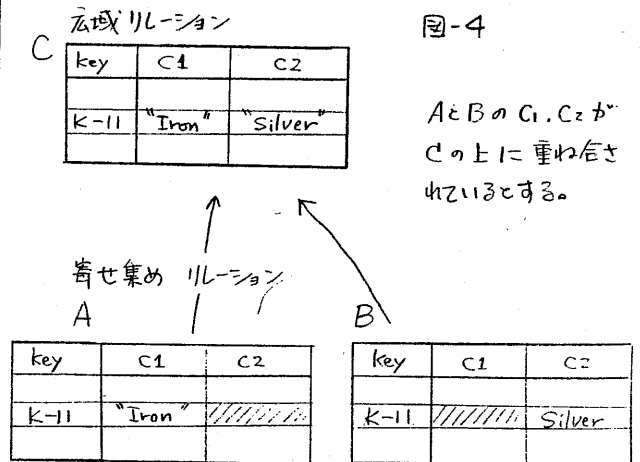 広域リレーション
図-4
C
key C1 C2
K-11 "Iron" "Silver"
AとBのC1.C2が
Cの上に重ね合さ
れているとする。
寄せ集め リレーション
A
key C1 C2
K-11 "Iron"
B
key C1 C2
K-11 Silver